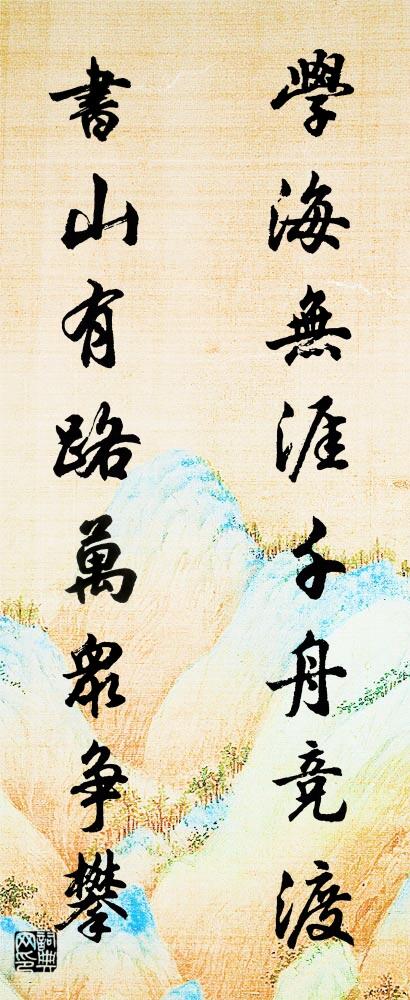 學海無涯千舟竞渡
書山有路萬眾争攀
詞典網印